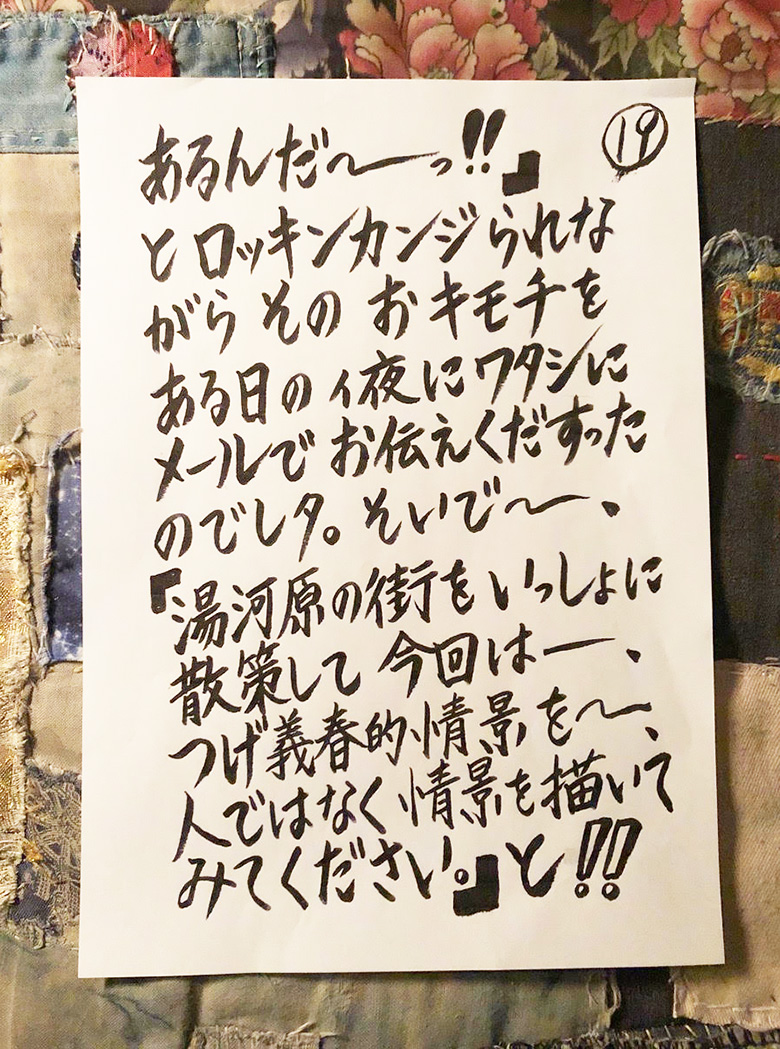 ⑲
あるんだ〜ーっ!!』
とロッキンカンジられな
がら その おキモチを
ある日のィ夜にワタシに
メールで お伝えくだすった
のでレタ。そいで〜、
『湯河原の街を いっしょに
散策して 今回はー、
つげ義春的情景を〜、
人ではなく情景を描いて
みてください。』と!!